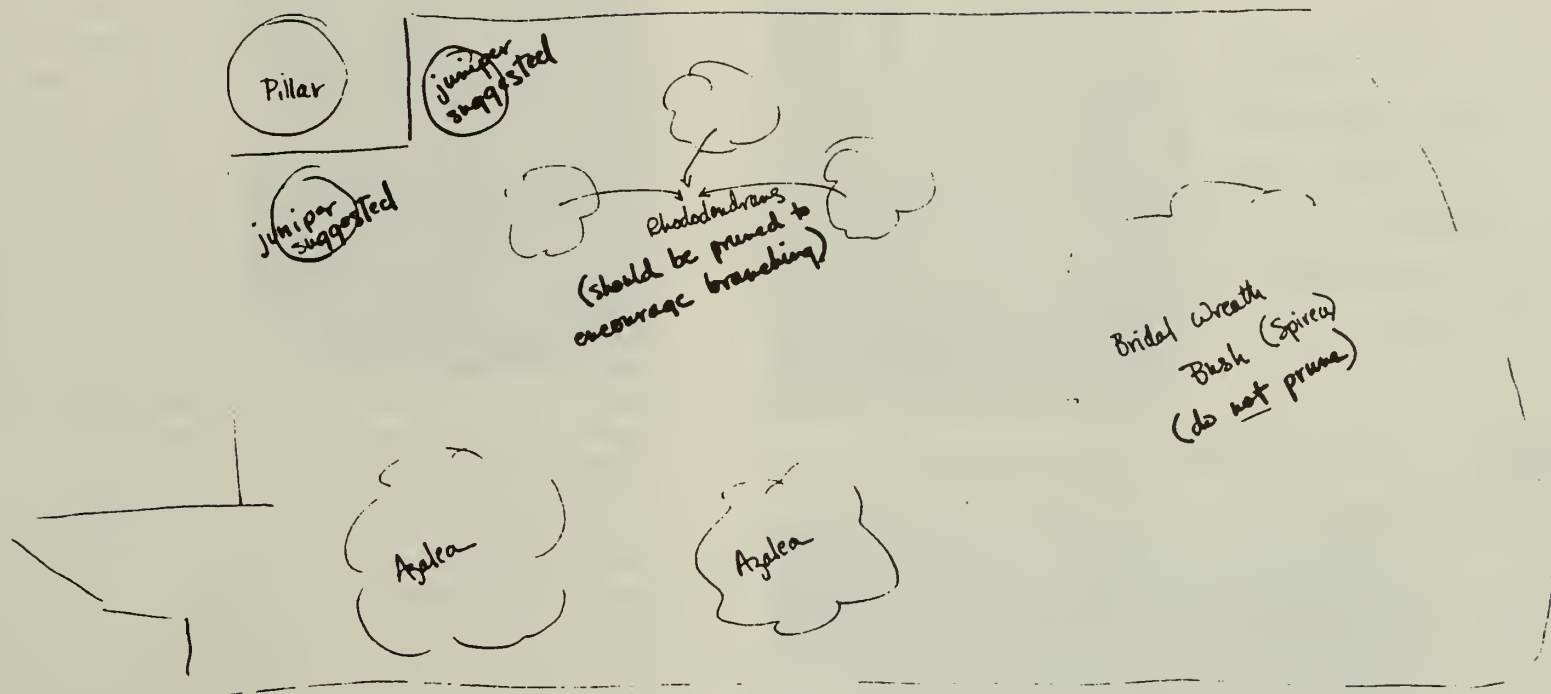 Pillar
juniper
suggested
juniper
suggested
Rhododendrans
(should be pruned to
encourage branching)
Bridal Wreath
Bush (Spirea)
(do not prune)
Azalea
Azalea